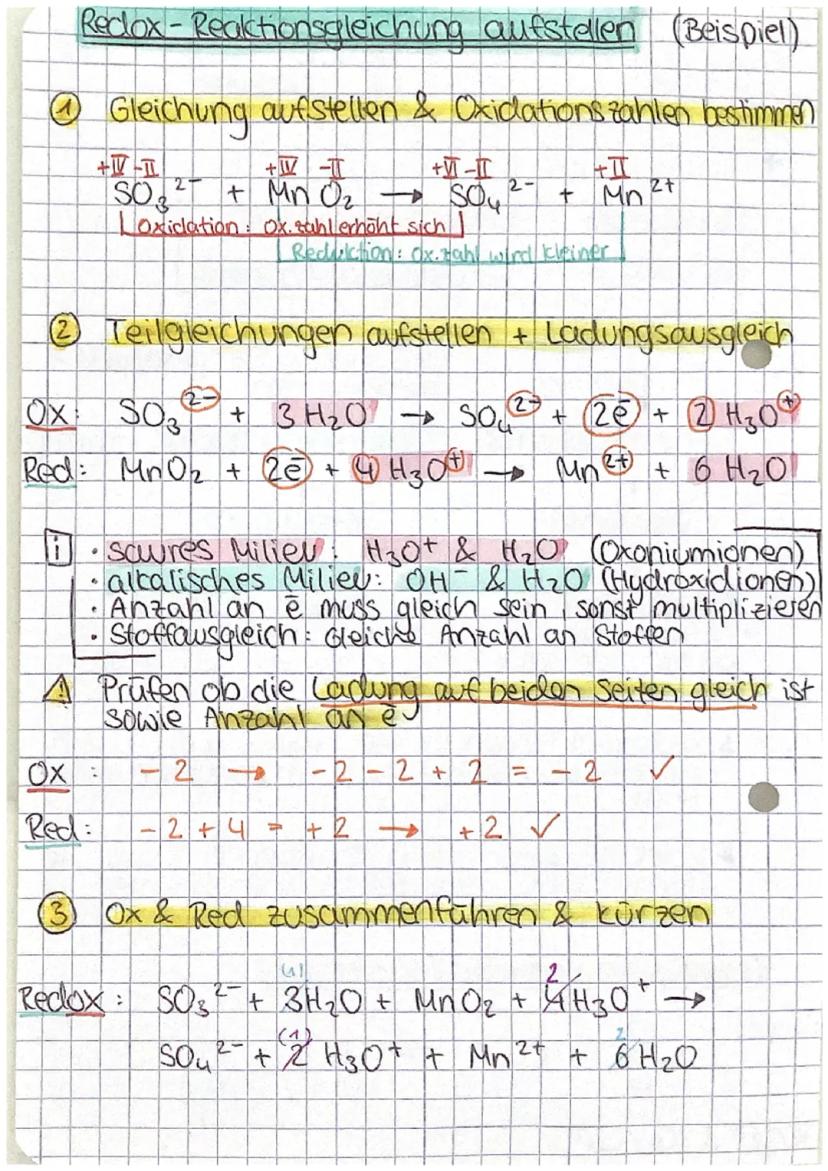 Redox-Reaktionsgleichung aufstellen (Beispiel)
① Gleichung aufstellen & Oxidationszahlen bestimmen
+IV -II +IV -II +VI -II +II
SO₃²⁻ + MnO₂ → SO₄²⁻ + Mn²⁺
Oxidation: Ox.zahl erhöht sich
Reduktion: Ox.zahl wird kleiner
② Teilgleichungen aufstellen + Ladungsausgleich
Ox: SO₃²⁻ + 3 H₂O → SO₄²⁻ + 2e⁻ + 2 H₃O⁺
Red: MnO₂ + 2e⁻ + 4 H₃O⁺ → Mn²⁺ + 6 H₂O
i • saures Milieu: H₃O⁺ & H₂O (Oxoniumionen)
• alkalisches Milieu: OH⁻ & H₂O (Hydroxidionen)
• Anzahl an e⁻ muss gleich sein, sonst multiplizieren
• Stoffausgleich: Gleiche Anzahl an Stoffen
⚠ Prüfen ob die Ladung auf beiden Seiten gleich ist
sowie Anzahl an e⁻
Ox: -2 → -2-2+2 = -2 ✓
Red: -2+4 = +2 → +2 ✓
③ Ox & Red zusammenführen & kürzen
(1) 2
Redox: SO₃²⁻ + 3H₂O + MnO₂ + 4H₃O⁺ →
(1) 2
SO₄²⁻ + 2 H₃O⁺ + Mn²⁺ + 6H₂O